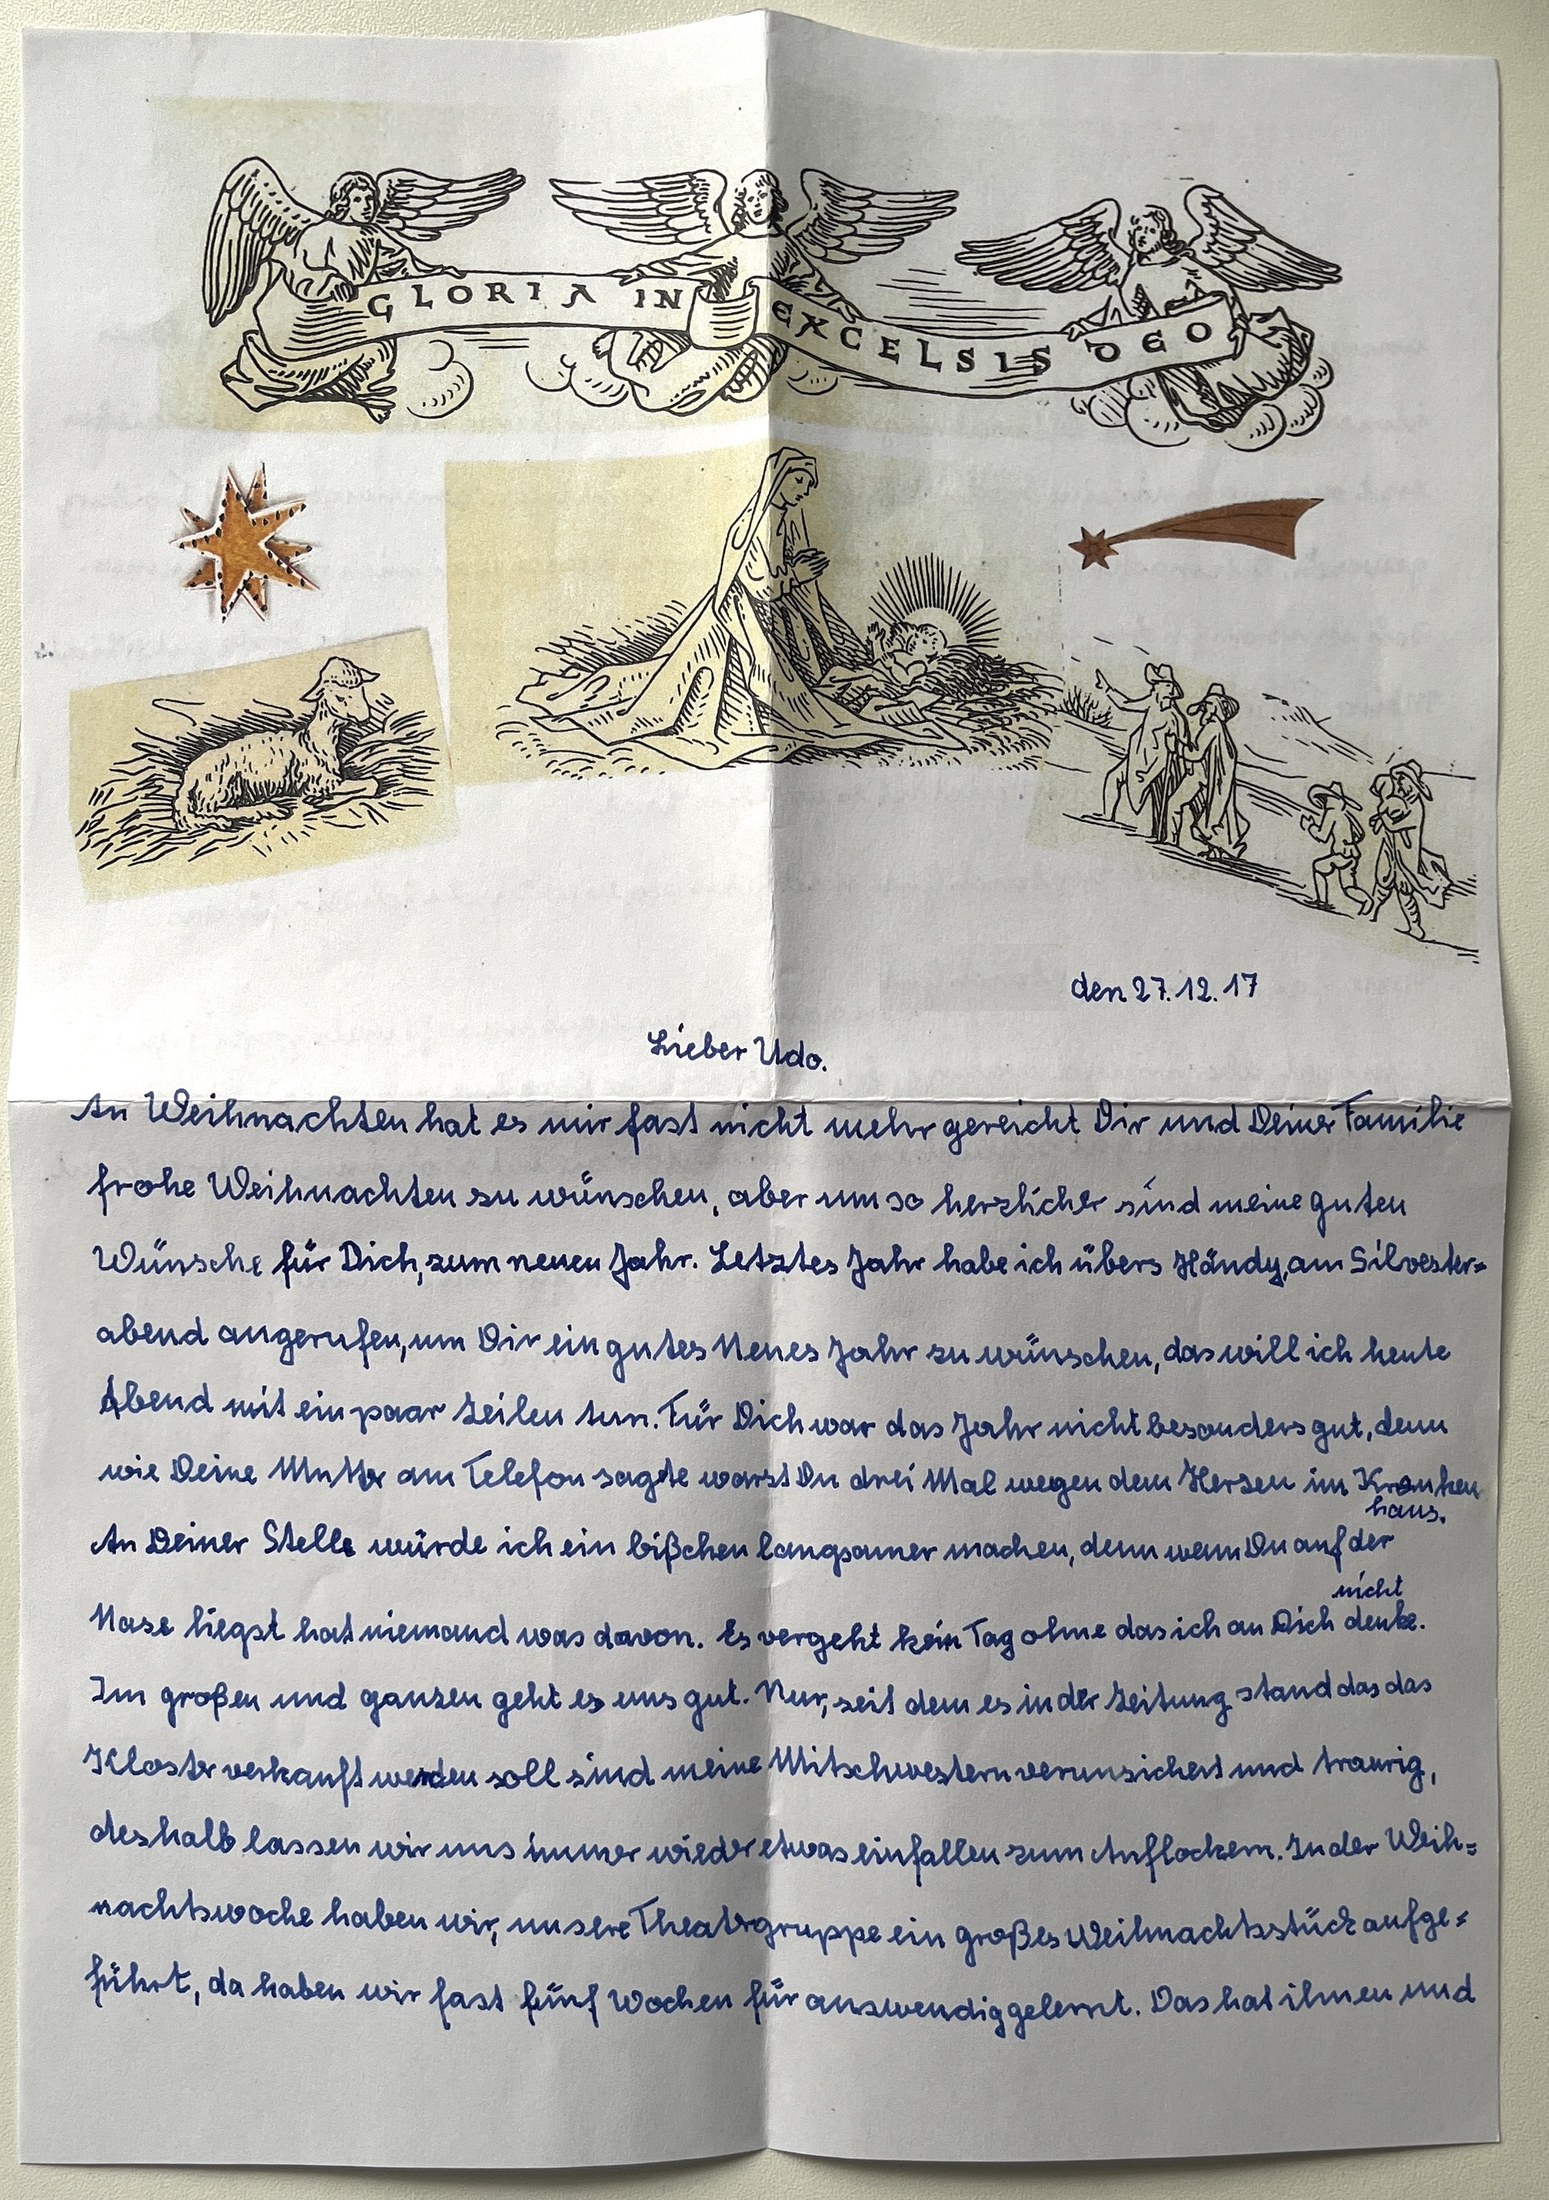 GLORIA IN EXCELSIS DEO
den 27.12.17
Lieber Udo.
An Weihnachten hat es mir fast nicht mehr gereicht Dir und Deiner Familie
frohe Weihnachten zu wünschen, aber um so herzlicher sind meine guten
Wünsche für Dich, zum neuen Jahr. Letztes Jahr habe ich übers Händy, am Silvester=
abend angerufen, um Dir ein gutes Neues Jahr zu wünschen, das will ich heute
Abend mit ein paar Zeilen tun. Für Dich war das Jahr nicht besonders gut, denn
wie Deine Mutter am Telefon sagte warst Du drei Mal wegen dem Herzen im Kranken
haus.
An Deiner Stelle würde ich ein bißchen langsamer machen, denn wenn Du auf der
nicht
Nase liegst hat niemand was davon. Es vergeht kein Tag ohne das ich an Dich denke.
Im großen und ganzen geht es uns gut. Nur, seit dem es in der Zeitung stand das das
Kloster verkauft werden soll sind meine Mitschwestern verunsichert und traurig,
deshalb lassen wir uns immer wieder etwas einfallen zum Auflockern. In der Weih=
nachtswoche haben wir, unsere Theatergruppe ein großes Weihnachtsstück aufge=
führt, da haben wir fast fünf Wochen für auswendig gelernt. Das hat ihnen und